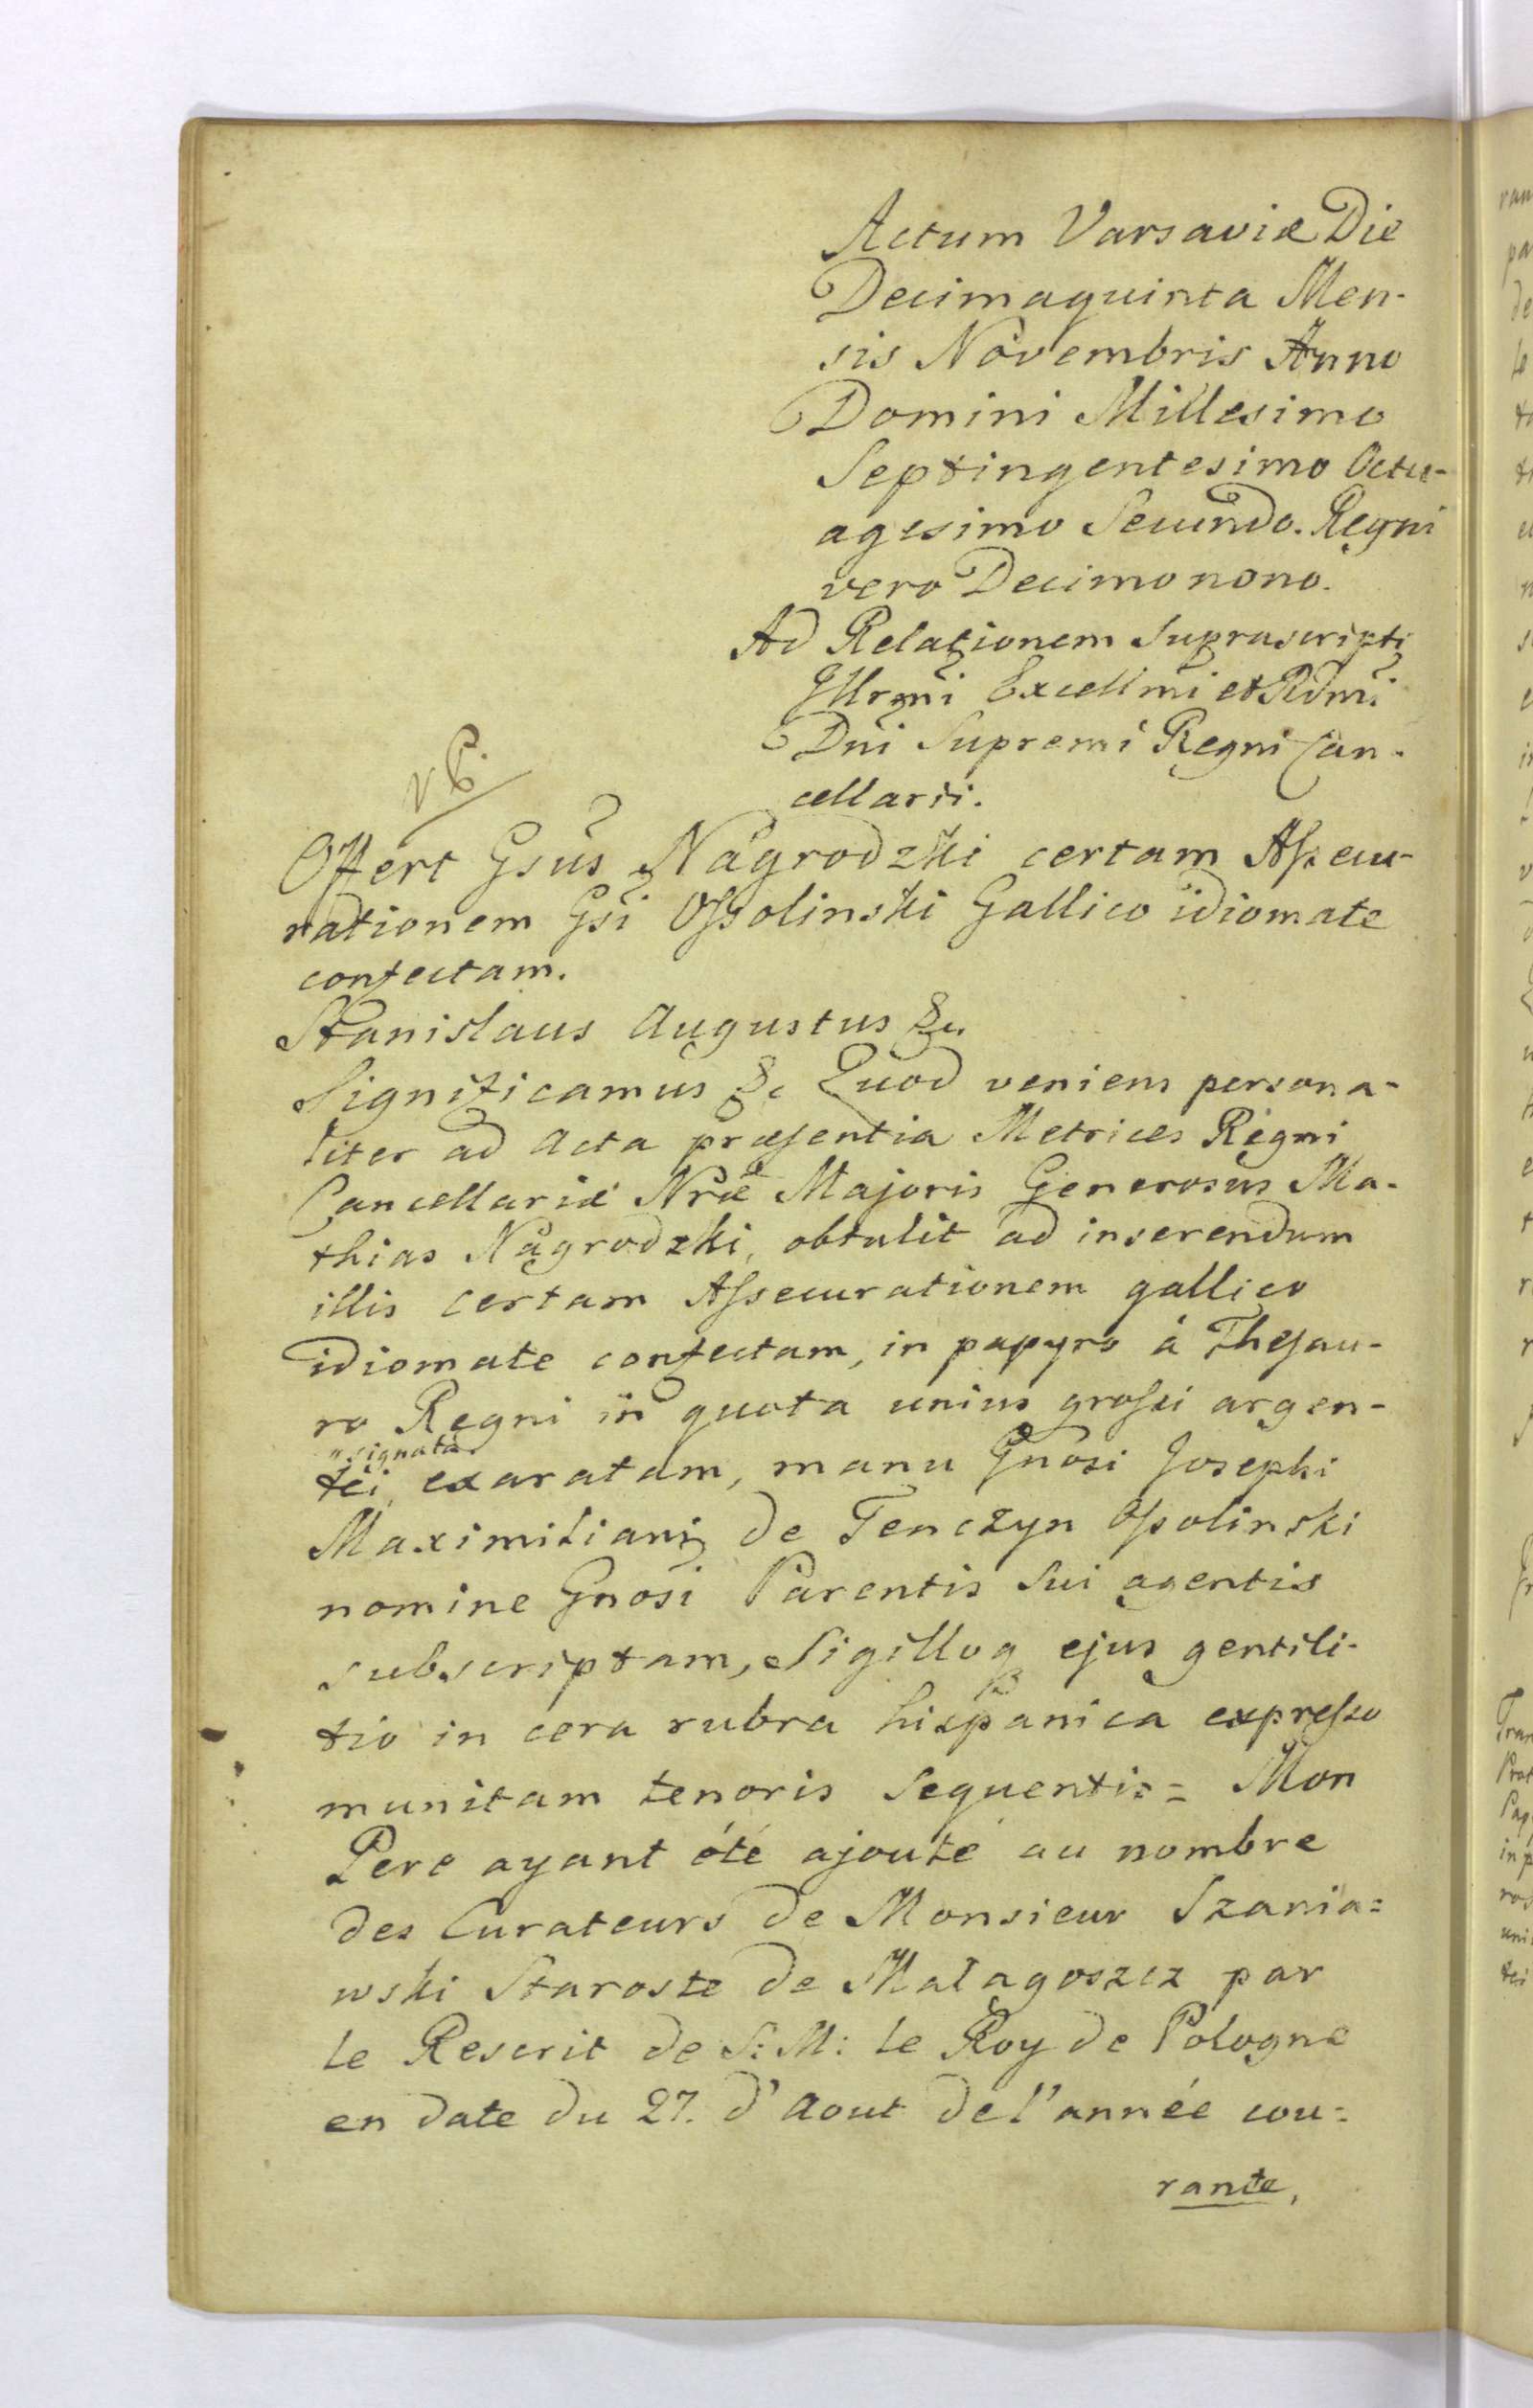 Actum Varsaviæ Die
Decimaquinta Men-
sis Novembris Anno
Domini Millesimo
Septingentesimo Octu-
agesimo Secundo. Regni
vero Decimo nono.
Ad Relationem Suprascripti
Illrmi Excellmi et Rdmi
Dni Supremi Regni Can-
cellarii.
Offert Gsus Nagrodzki certam Assecu-
rationem Gsi Ossolinski Gallico idiomate
confectam.
Stanislaus Augustus &c.
Significamus &c Quod veniens persona-
liter ad Acta præsentia Metrices Regni
Cancellariæ Nræ Majoris Generosus Ma-
thias Nagrodzki, obtulit ad inserendum
illis certam Assecurationem gallico
idiomate confectam, in papyro à Thesau-
ro Regni in quota unius grossi argen-
"signata
tei, exaratam, manu Gnosi Josephi
Maximiliani de Tenczyn Ossolinski
nomine Gnosi Parentis Sui agentis
subscriptam, Sigilloq ejus gentili-
tio in cera rubra hispanica expresso
munitam tenoris sequentis = Mon
Pere ayant été ajouté au nombre
des Curateurs de Monsieur Szania=
wski Staroste de Malagoszcz par
le Rescrit de S: M: le Roy de Pologne
en date du 27. d'Aout de l'année cou=
rante,